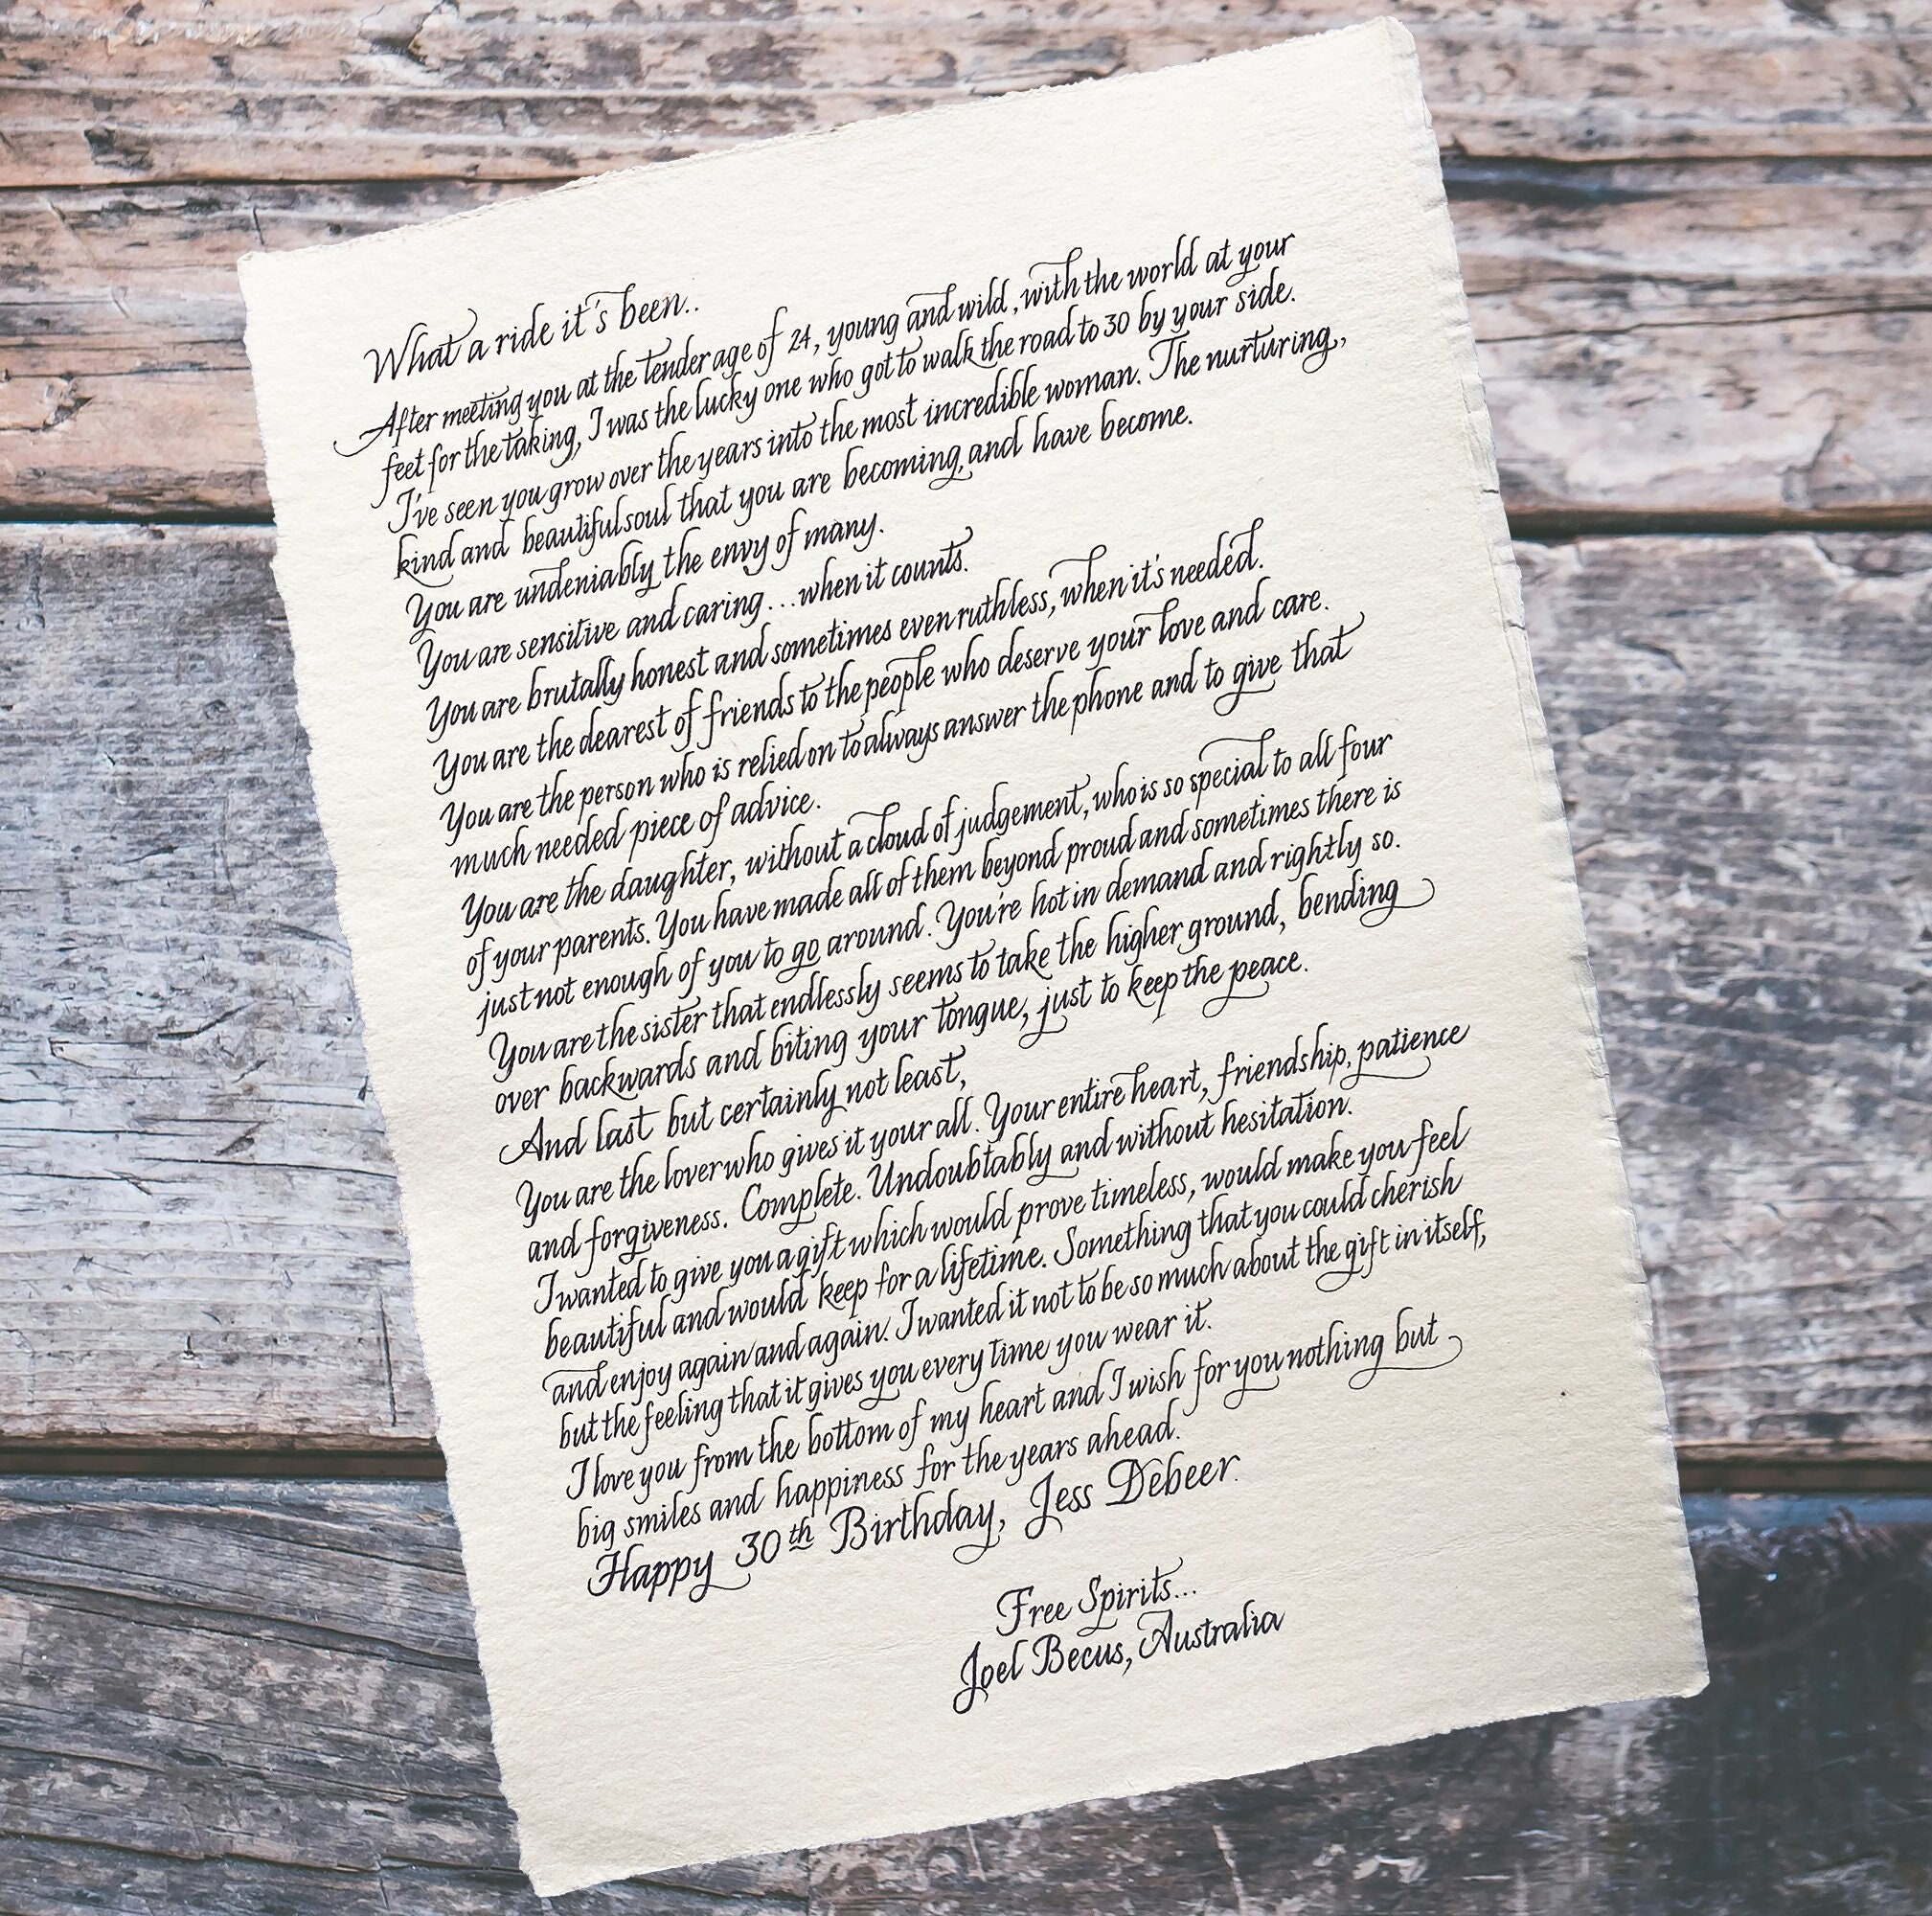 What a ride it's been..
After meeting you at the tender age of 24, young and wild, with the world at your
feet for the taking, I was the lucky one who got to walk the road to 30 by your side.
I've seen you grow over the years into the most incredible woman. The nurturing,
kind and beautiful soul that you are becoming, and have become.
You are undeniably the envy of many.
You are sensitive and caring...when it counts.
You are brutally honest and sometimes even ruthless, when it's needed.
You are the dearest of friends to the people who deserve your love and care.
You are the person who is relied on to always answer the phone and to give that
much needed piece of advice.
You are the daughter, without a cloud of judgement, who is so special to all four
of your parents. You have made all of them beyond proud and sometimes there is
just not enough of you to go around. You're hot in demand and rightly so.
You are the sister that endlessly seems to take the higher ground, bending
over backwards and biting your tongue, just to keep the peace.
And last but certainly not least,
You are the lover who gives it your all. Your entire heart, friendship, patience
and forgiveness. Complete. Undoubtably and without hesitation.
I wanted to give you a gift which would prove timeless, would make you feel
beautiful and would keep for a lifetime. Something that you could cherish
and enjoy again and again. I wanted it not to be so much about the gift in itself,
but the feeling that it gives you every time you wear it.
I love you from the bottom of my heart and I wish for you nothing but
big smiles and happiness for the years ahead.
Happy 30th Birthday, Jess Debeer.
Free Spirits...
Joel Becus, Australia